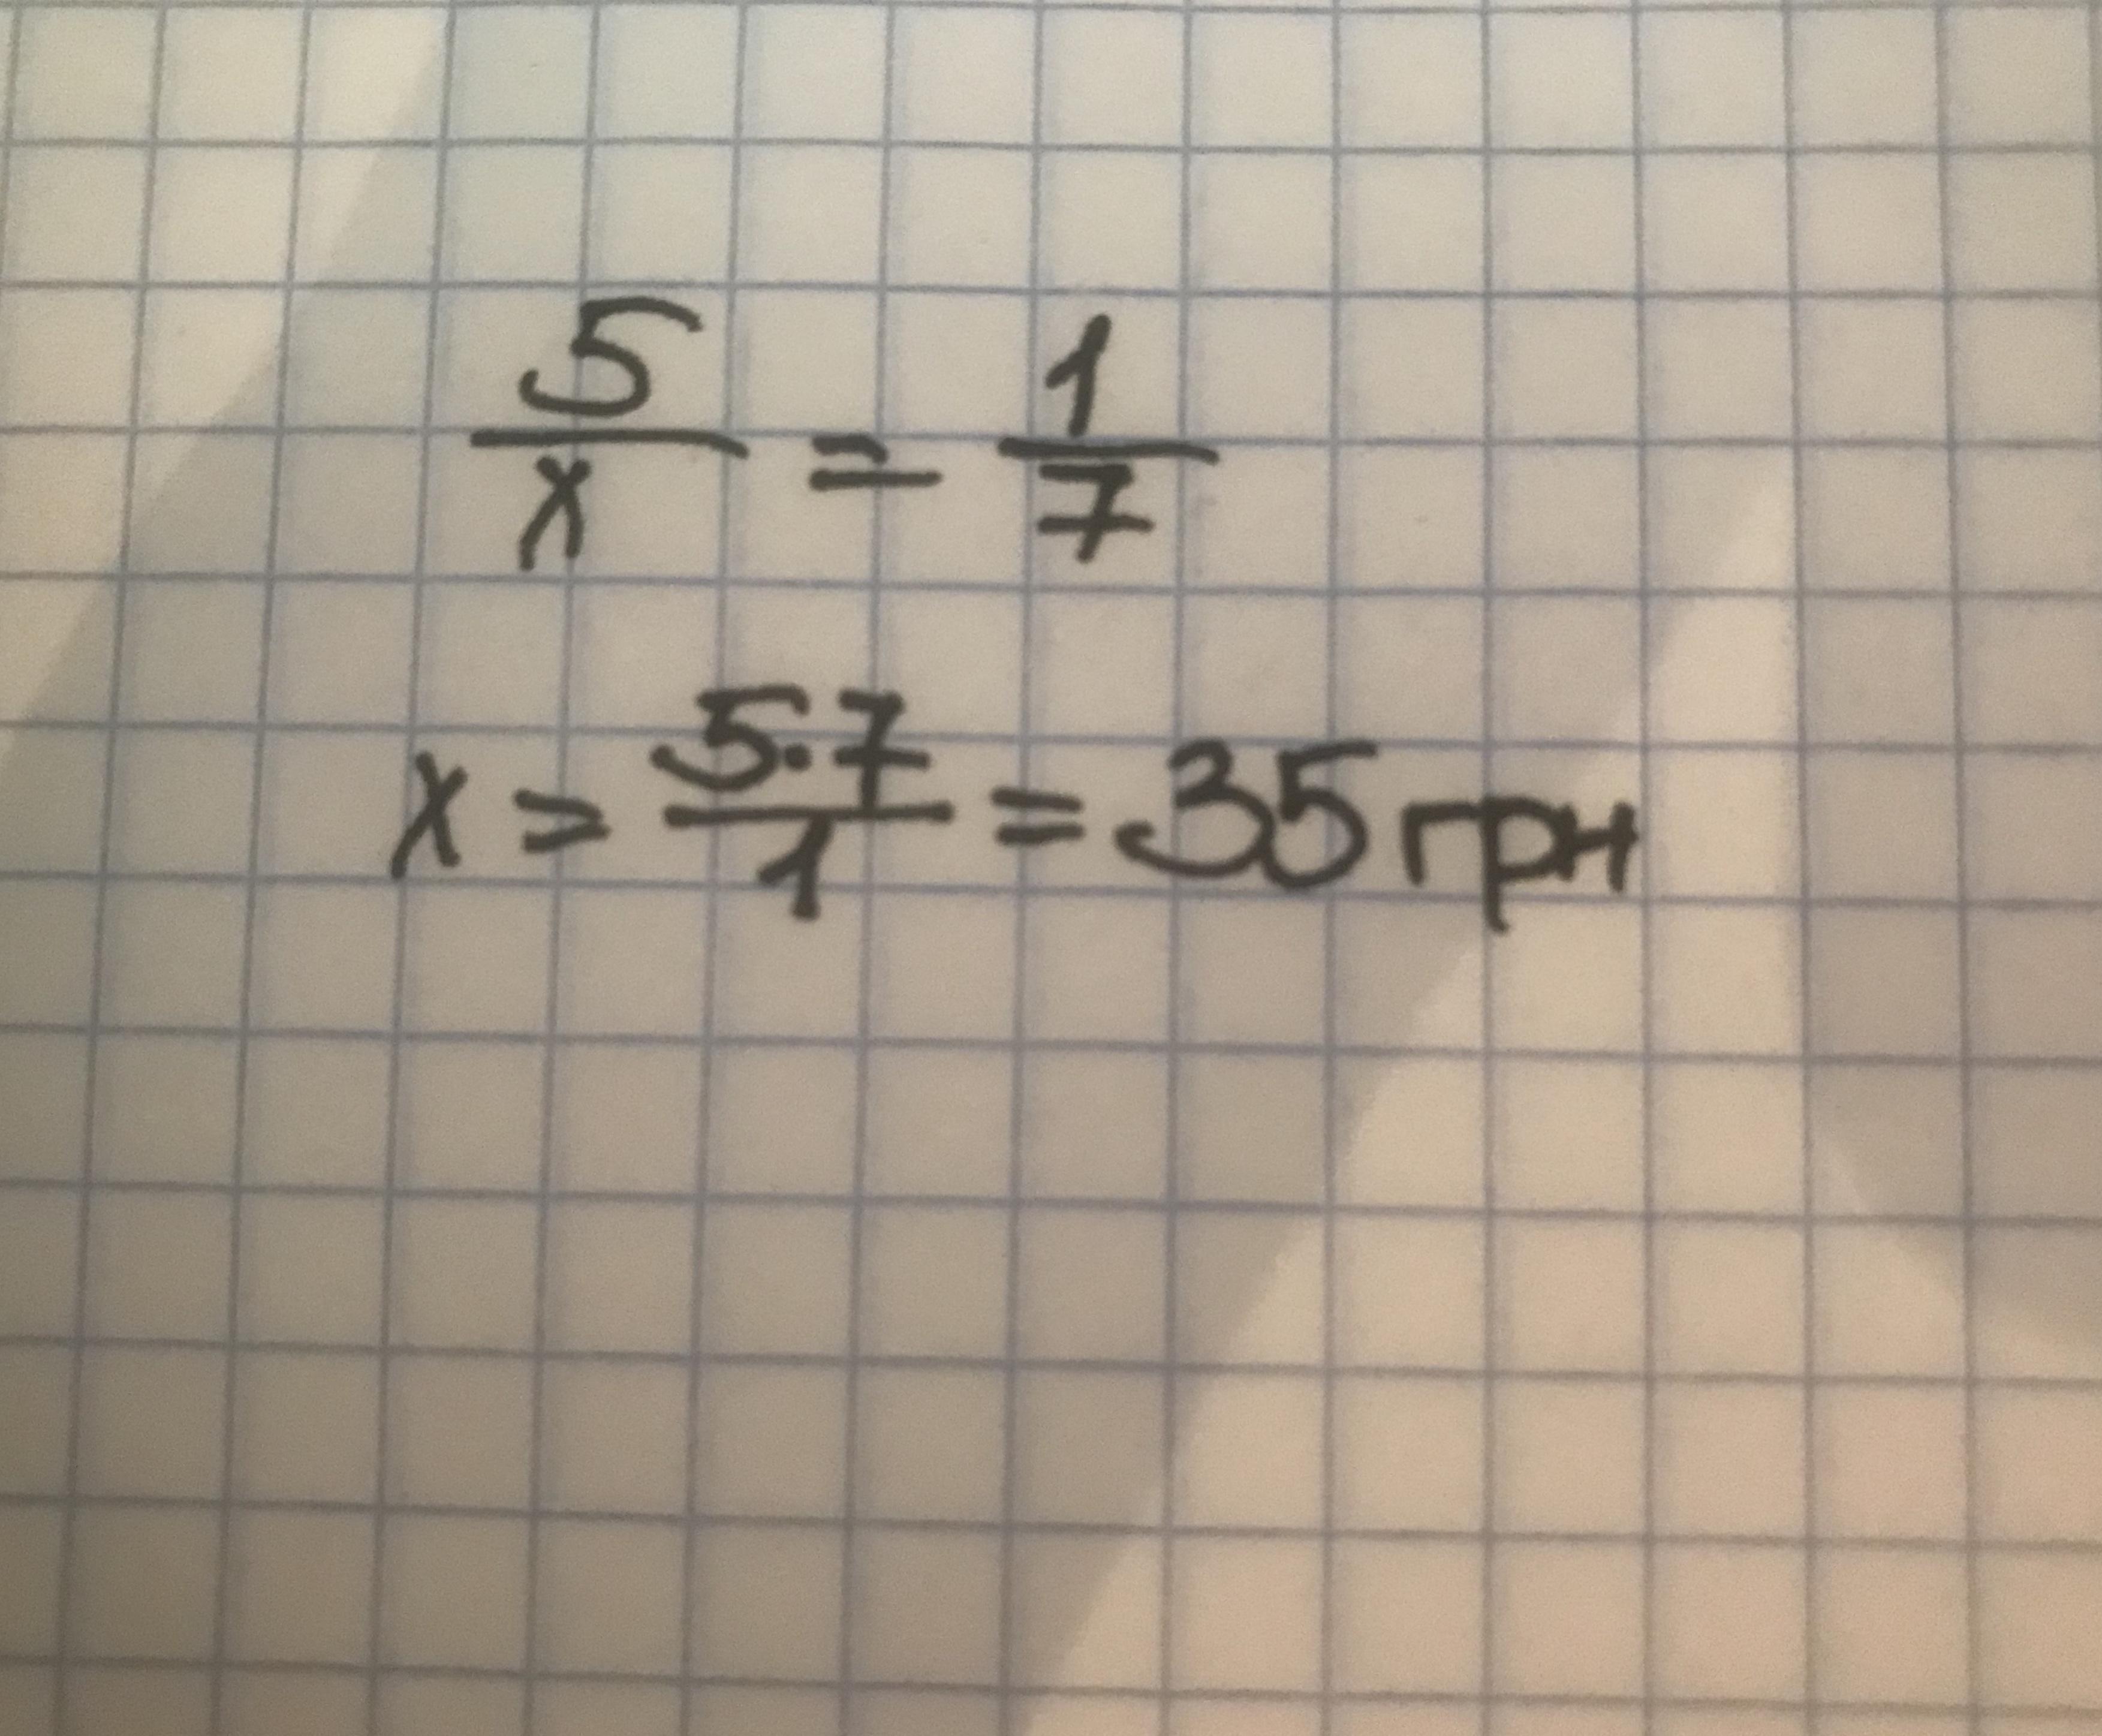 5/x = 1/7
x = 5·7/1 = 35 грн